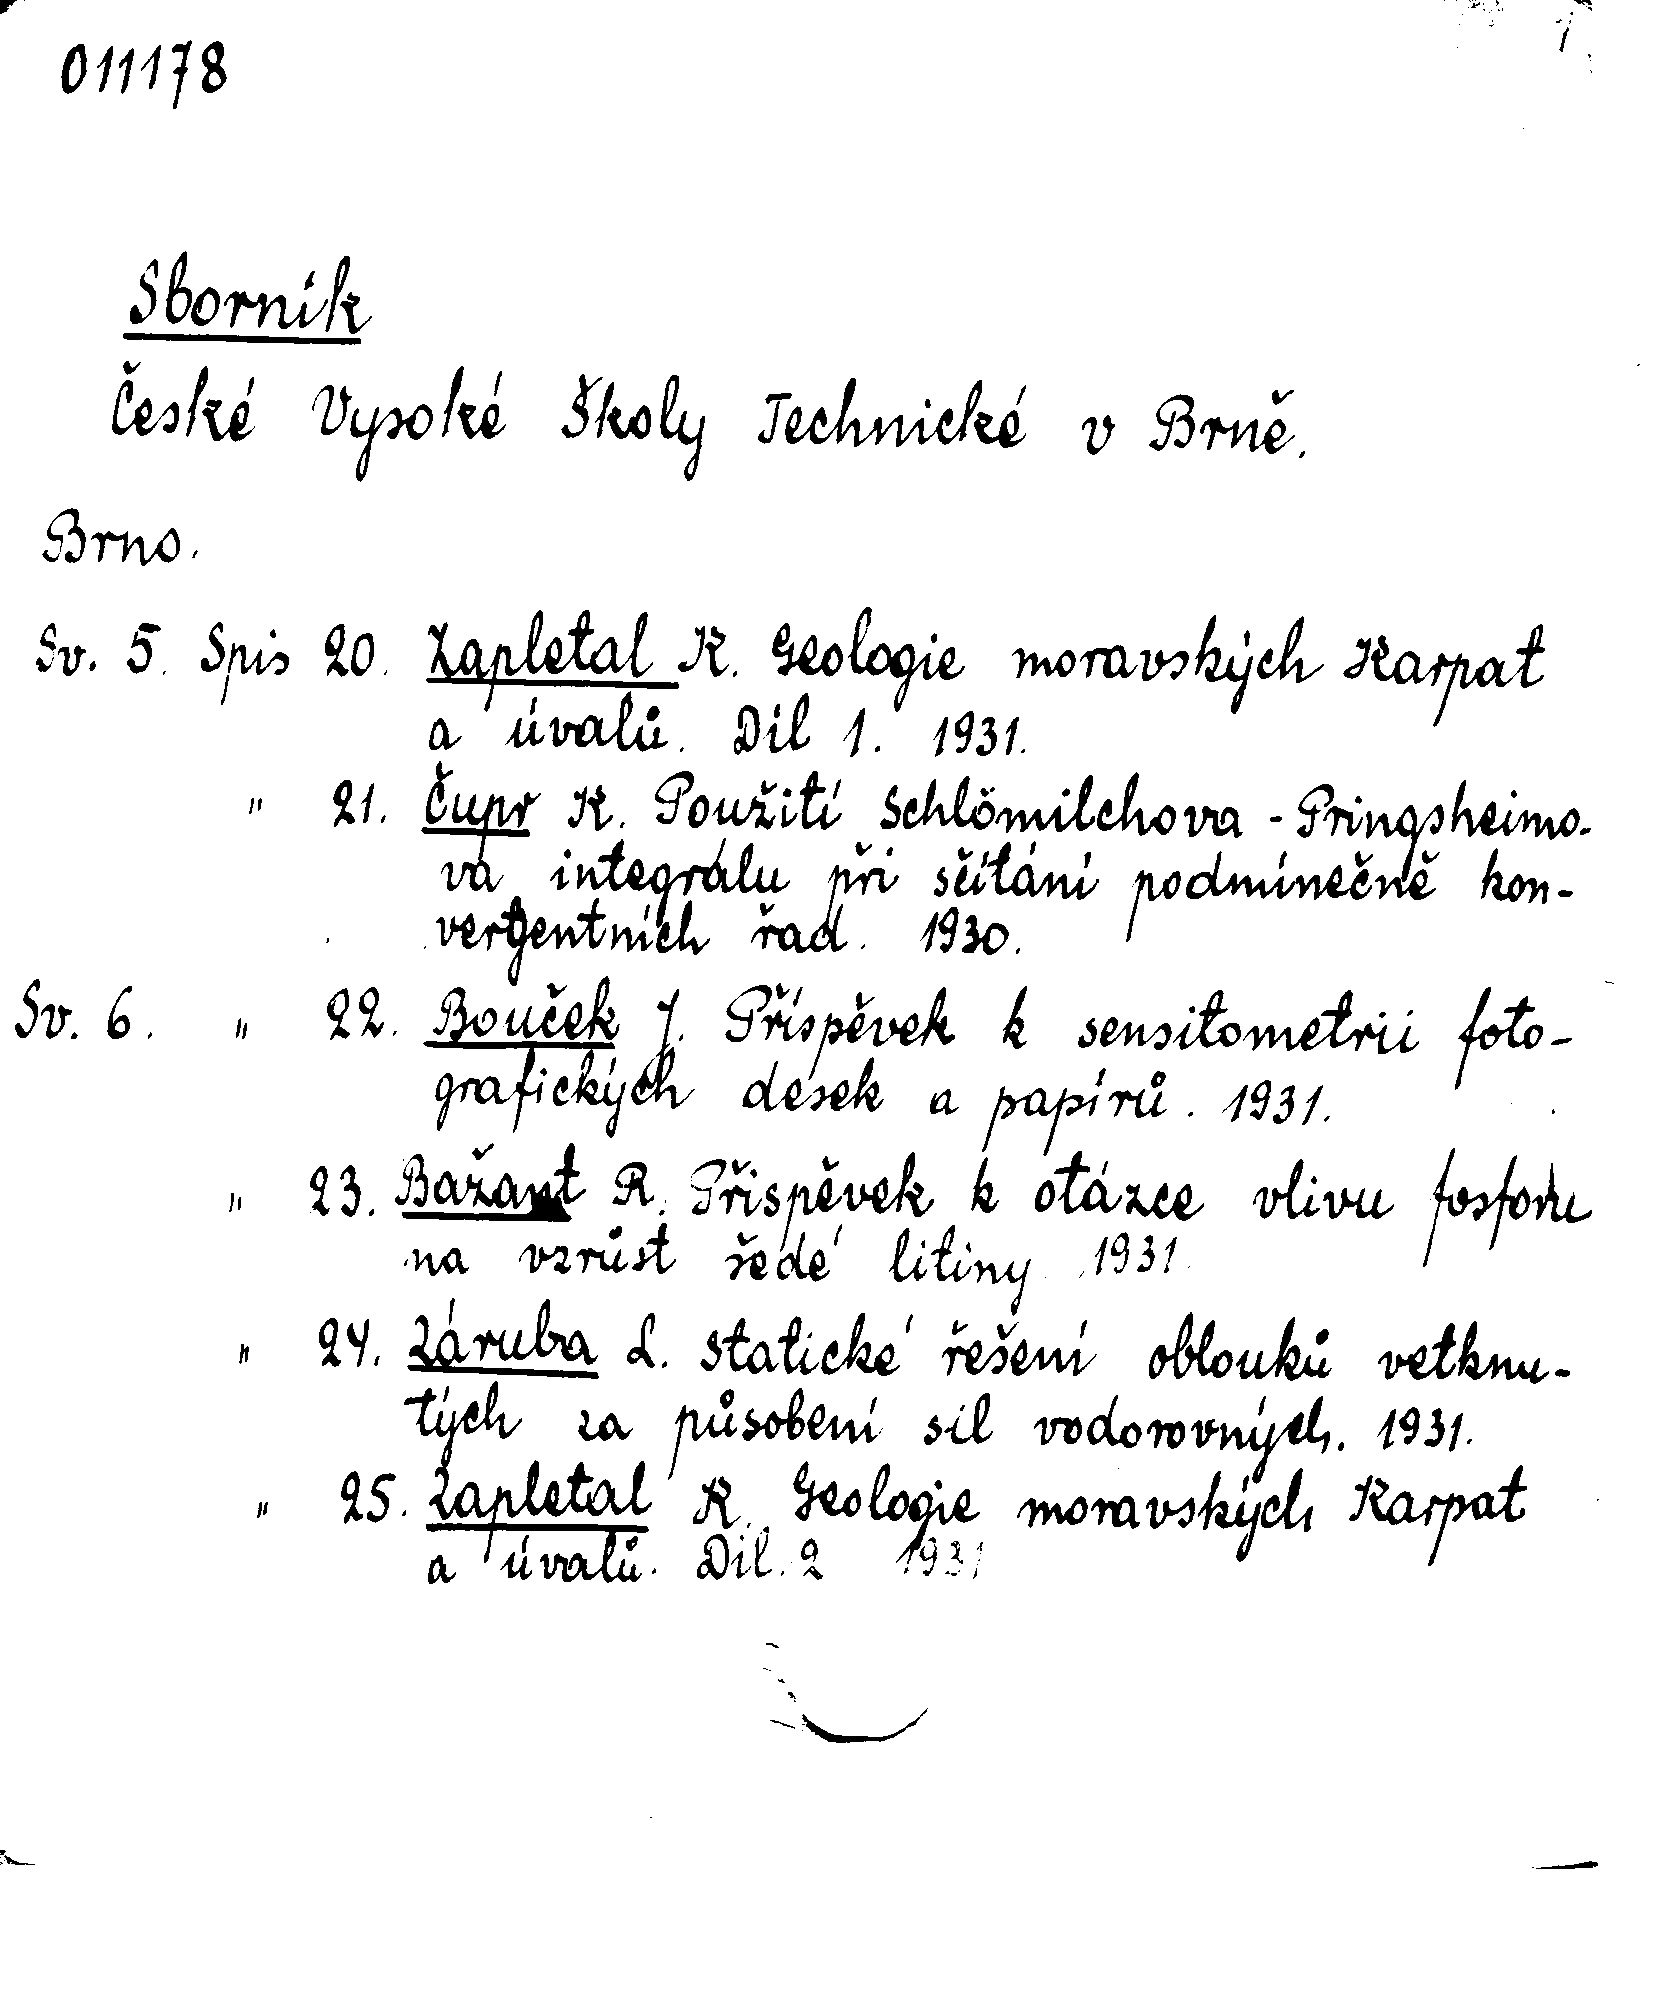 011178
1
Sborník
České Vysoké Školy Technické v Brně.
Brno.
Sv. 5. Spis 20. Zapletal K. Geologie moravských Karpat
a úvalů. Díl 1. 1931.
" 21. Čupr K. Použití Schlömilchova - Pringsheimo-
va integrálu při sčítání podmínečně kon-
vergentních řad. 1930.
Sv. 6. " 22. Bouček J. Příspěvek k sensitometrii foto-
grafických desek a papírů. 1931.
" 23. Bažant R. Příspěvek k otázce vlivu fosforu
na vzrůst šedé litiny 1931.
" 24. Záruba L. Statické řešení oblouků vetknu-
tých za působení sil vodorovných. 1931.
" 25. Zapletal K. Geologie moravských Karpat
a úvalů. Díl. 2 1931